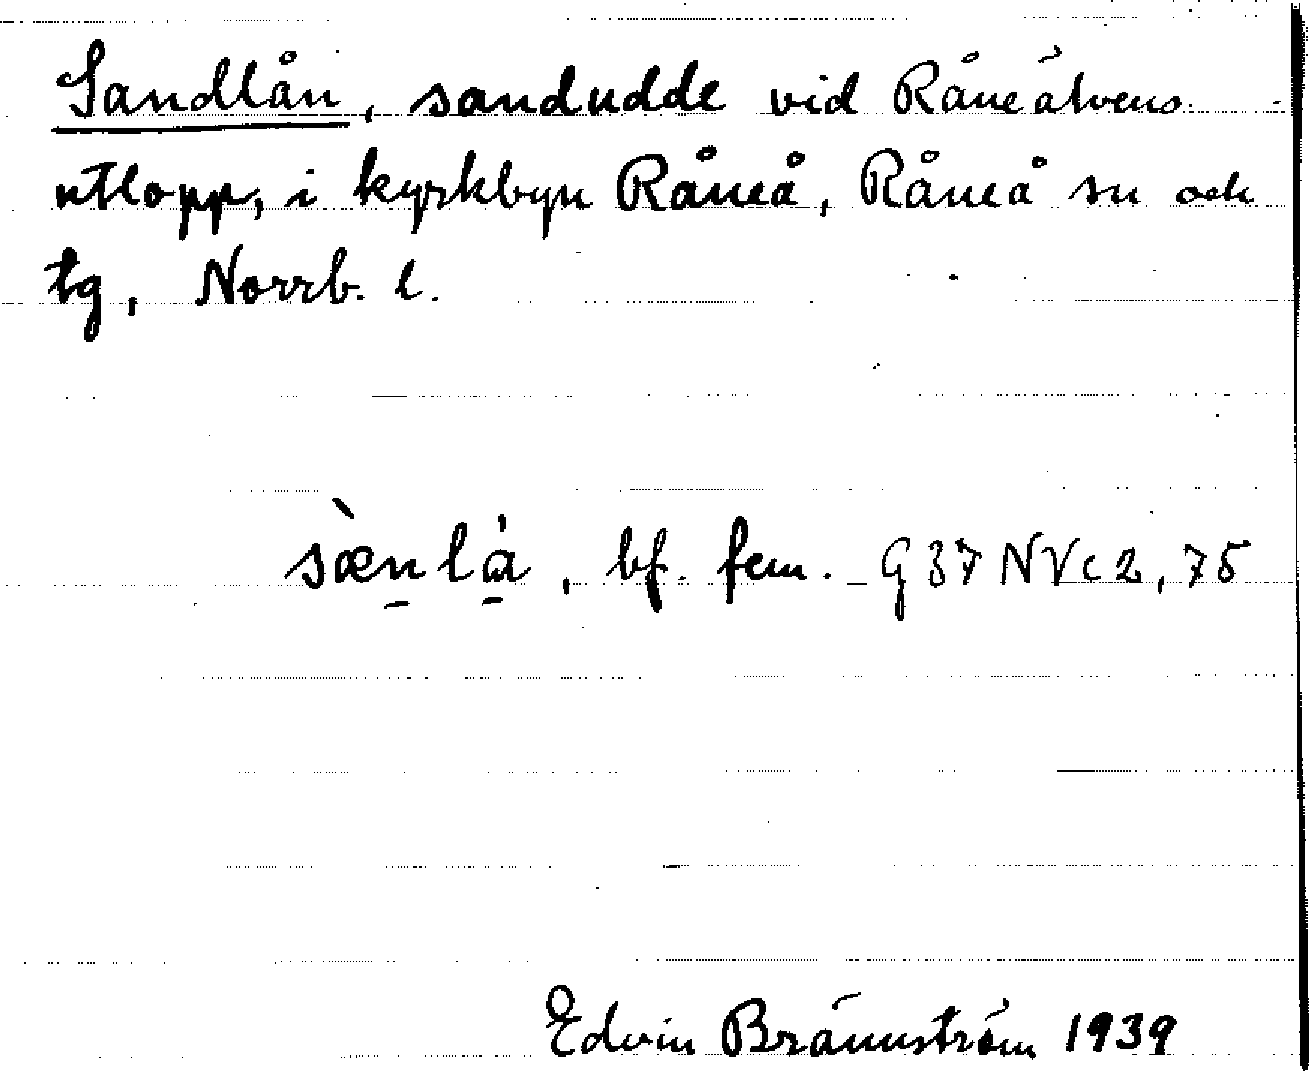 Sandlån, sandudde vid Råneälvens
utlopp, i kyrkbyn Råneå, Råneå sn och
tg, Norrb. l.
sæ̀n̠la̠̍, bf. fem. G37 NVc2, 75
Edvin Brännström 1939